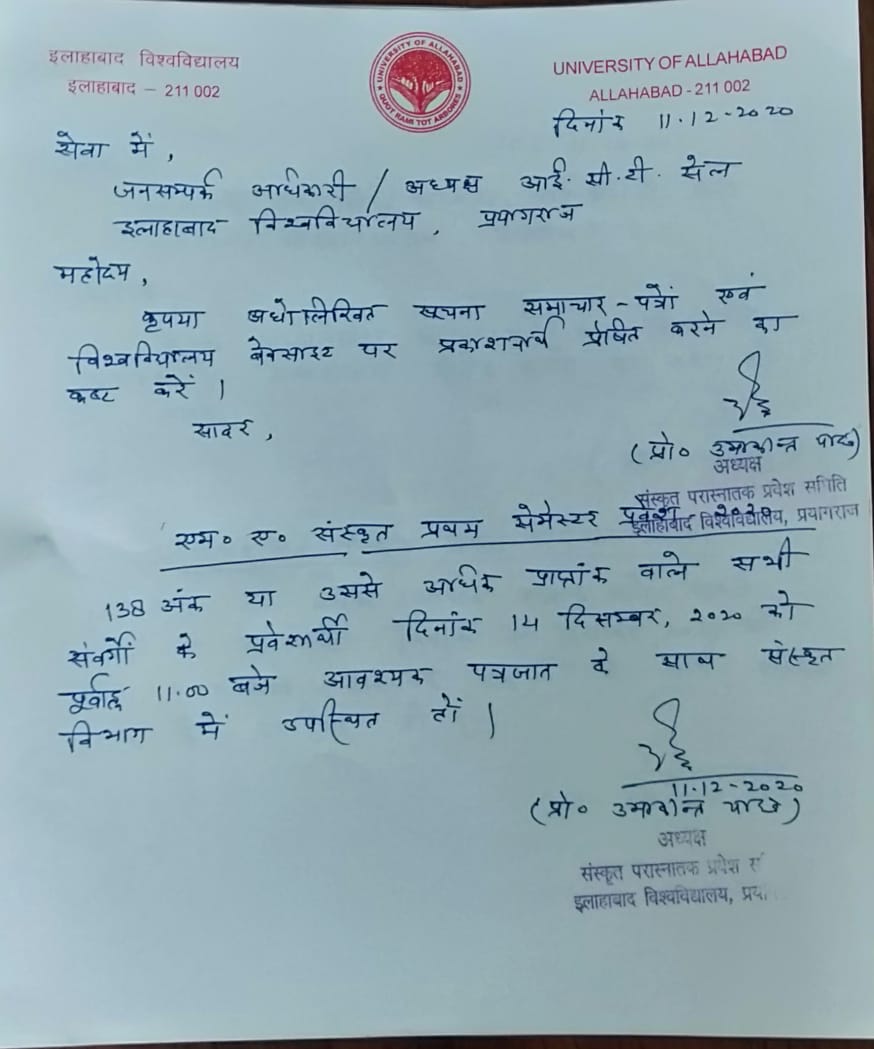 इलाहाबाद विश्वविद्यालय
इलाहाबाद – 211 002
UNIVERSITY OF ALLAHABAD
QUOT RAMI TOT ARBORES
UNIVERSITY OF ALLAHABAD
ALLAHABAD - 211 002
दिनांक 11.12-2020
सेवा में,
जनसम्पर्क अधिकारी / अध्यक्ष आई. सी. टी. सेल
इलाहाबाद विश्वविद्यालय, प्रयागराज
महोदय,
कृपया अधोलिखित सूचना समाचार-पत्रों एवं
विश्वविद्यालय वेबसाइट पर प्रकाशनार्थ प्रेषित करने का
कष्ट करें।
सादर,
(प्रो० उमाकान्त यादव)
अध्यक्ष
संस्कृत परास्नातक प्रवेश समिति
इलाहाबाद विश्वविद्यालय, प्रयागराज
एम० ए० संस्कृत प्रथम सेमेस्टर प्रवेश 2020
138 अंक या उससे अधिक प्राप्तांक वाले सभी
संवर्गों के प्रवेशार्थी दिनांक 14 दिसम्बर, 2020 को
पूर्वाह्न 11.00 बजे आवश्यक पत्रजात के साथ संस्कृत
विभाग में उपस्थित हों।
11.12-2020
(प्रो० उमाकान्त यादव)
अध्यक्ष
संस्कृत परास्नातक प्रवेश
इलाहाबाद विश्वविद्यालय,